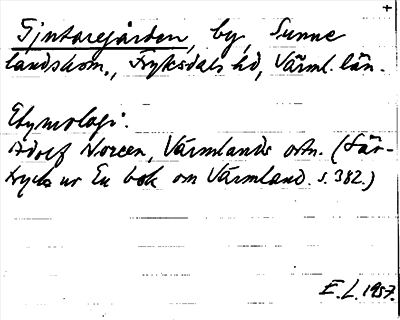 +
Tjintaregården, by, Sunne
landskom., Fryksdals hd, Värml. län.
Etymologi:
Adolf Noreen, Värmlands ortn. (Sär-
tryck ur En bok om Värmland. s. 382.)
E. L. 1957.